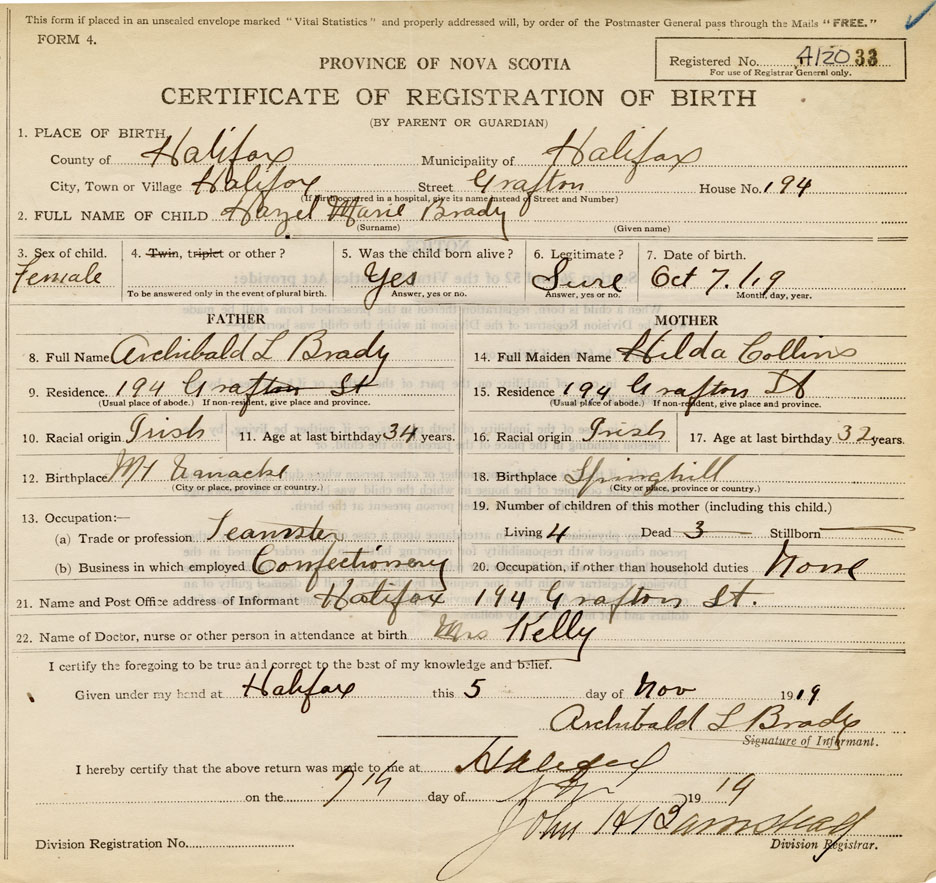 This form if placed in an unsealed envelope marked "Vital Statistics" and properly addressed will, by order of the Postmaster General pass through the Mails "FREE."
FORM 4.
Registered No. 412033
For use of Registrar General only.
PROVINCE OF NOVA SCOTIA
CERTIFICATE OF REGISTRATION OF BIRTH
(BY PARENT OR GUARDIAN)
1. PLACE OF BIRTH,
County of Halifax Municipality of Halifax
City, Town or Village Halifax Street Grafton House No. 194
(If birth occurred in a hospital, give its name instead of Street and Number)
2. FULL NAME OF CHILD Hazel Marie Brady
(Surname) (Given name)
3. Sex of child. 4. Twin, triplet or other? 5. Was the child born alive? 6. Legitimate? 7. Date of birth.
Female Yes Sure Oct 7./19
To be answered only in the event of plural birth. Answer, yes or no. Answer, yes or no. Month, day, year.
FATHER MOTHER
8. Full Name Archibald L Brady 14. Full Maiden Name Hilda Collins
9. Residence. 194 Grafton St 15. Residence 194 Grafton St
(Usual place of abode.) If non-resident, give place and province. (Usual place of abode.) If non-resident, give place and province.
10. Racial origin Irish 11. Age at last birthday 34 years. 16. Racial origin Irish 17. Age at last birthday 32 years.
12. Birthplace Mt 18. Birthplace Springhill
(City or place, province or country.) (City or place, province or country.)
13. Occupation:— 19. Number of children of this mother (including this child.)
(a) Trade or profession. Teamster Living 4 Dead 3 Stillborn
(b) Business in which employed Confectionery 20. Occupation, if other than household duties None
21. Name and Post Office address of Informant Halifax 194 Grafton St.
22. Name of Doctor, nurse or other person in attendance at birth Mrs Kelly
I certify the foregoing to be true and correct to the best of my knowledge and belief.
Given under my hand at Halifax this 5 day of Nov 1919
Archibald L Brady
Signature of Informant.
I hereby certify that the above return was made to me at
on the 7th day of 1919
John H
Division Registration No. Division Registrar.